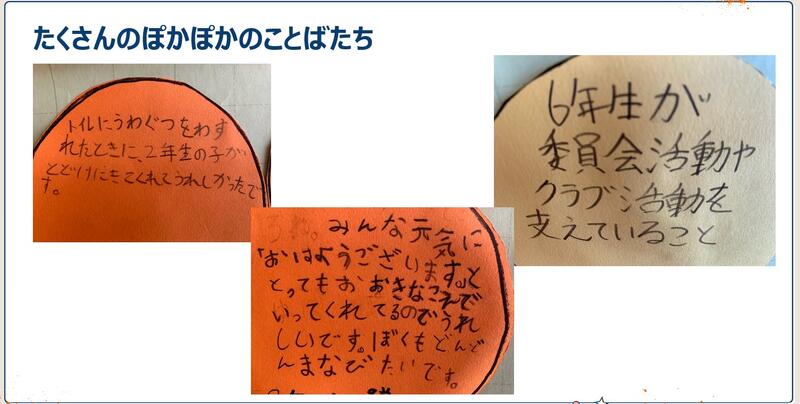 たくさんのぽかぽかのことばたち
トイレにうわぐつをわす
れたときに、2年生の子が
とどけにきてくれてうれしかったで
す。
6年生が
委員会活動や
クラブ活動を
支えていること
みんな元気に
「おはようございます。」と
とってもおおきなこえで
いってくれてるのでうれ
しいです。ぼくもどんど
んまなびたいです。